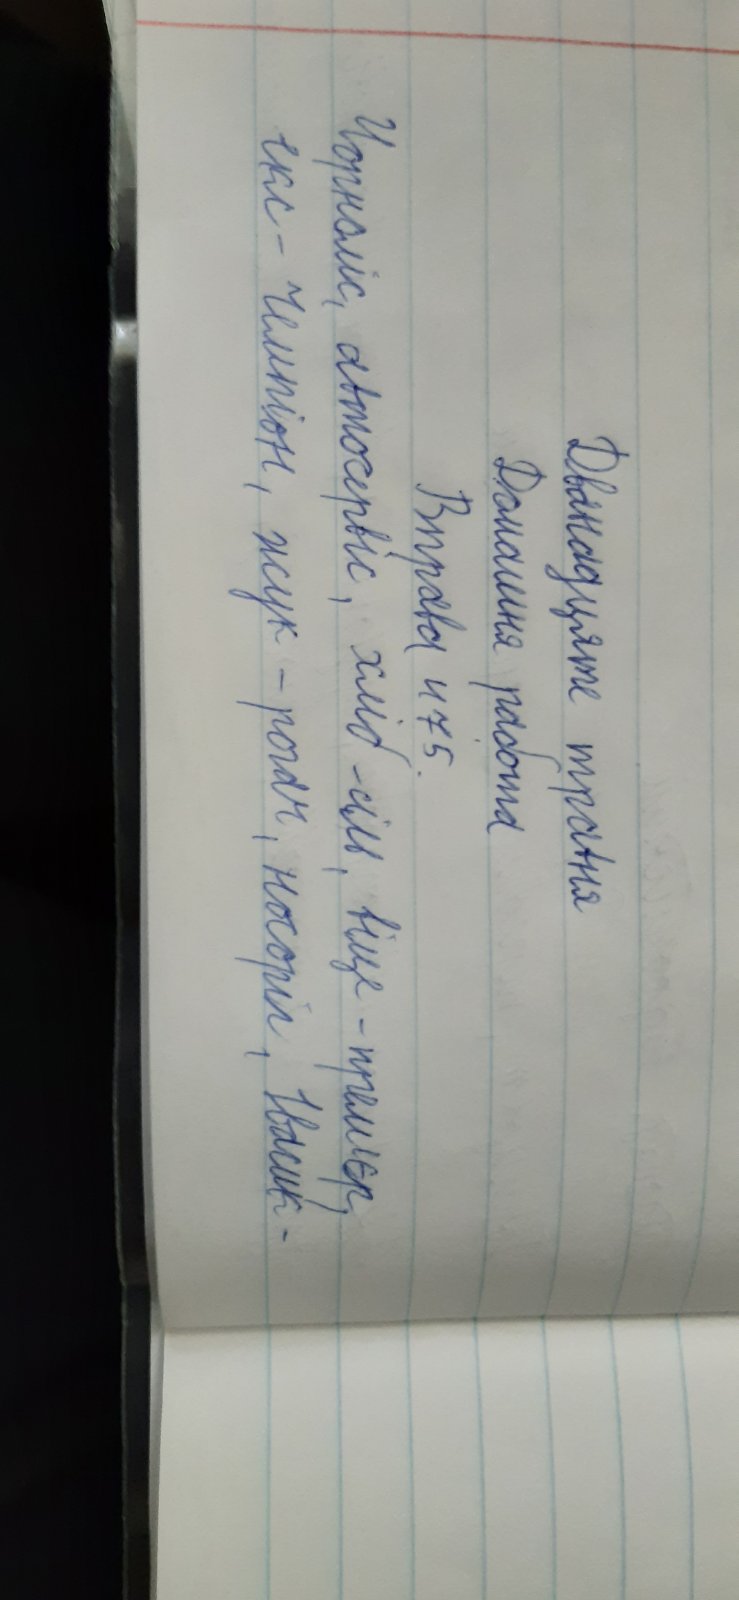 Дванадцяте травня
Домашня работа
Вправа 475.
Чорноліс, автосервіс, хліб-сіль, віце-прем'єр,
екс-чемпіон, жук-рогач, носоріг, Івасик-